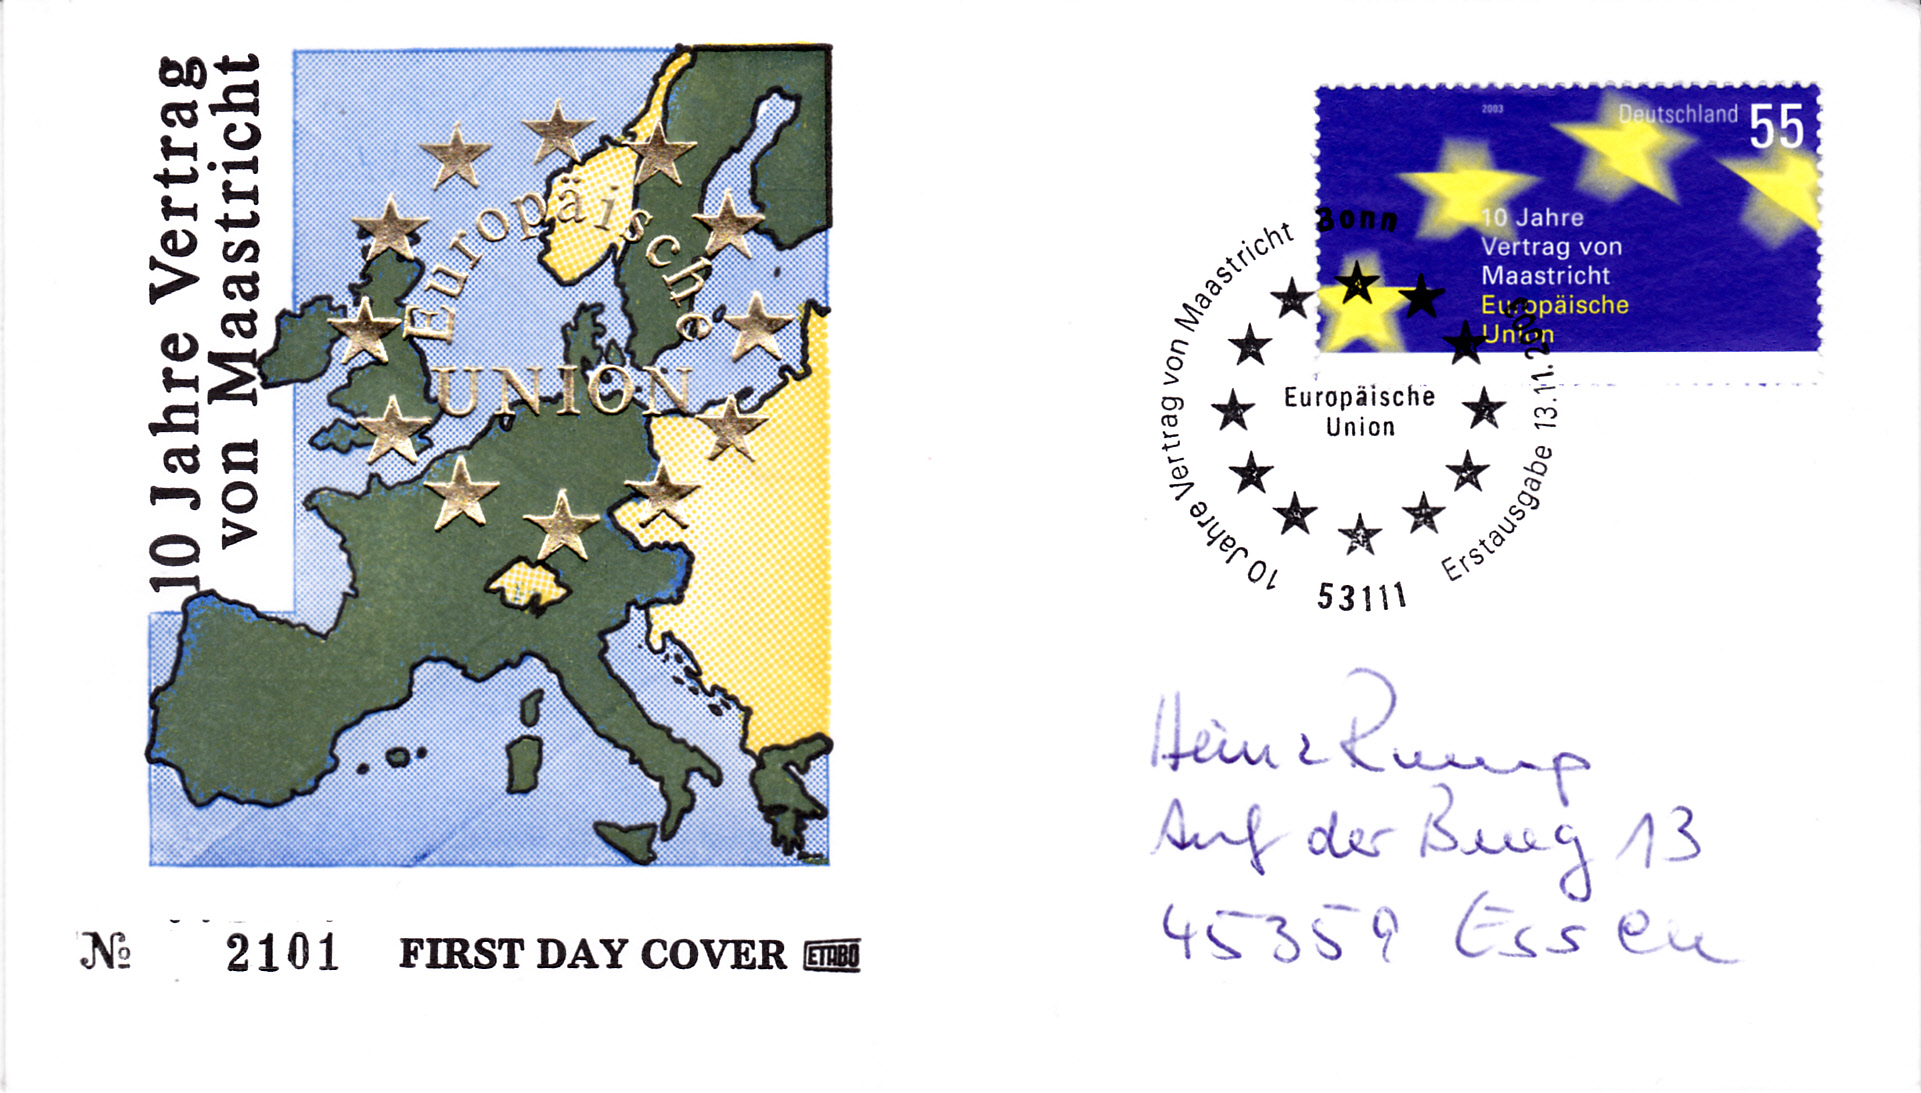 10 Jahre Vertrag
von Maastricht
Europäische
UNION
№ 2101 FIRST DAY COVER ETABO
2003
Deutschland 55
10 Jahre
Vertrag von
Maastricht
Europäische
Union
Bonn
10 Jahre Vertrag von Maastricht
Europäische
Union
Erstausgabe 13.11.2003
53111
Heinz Rump
Auf der Burg 13
45359 Essen